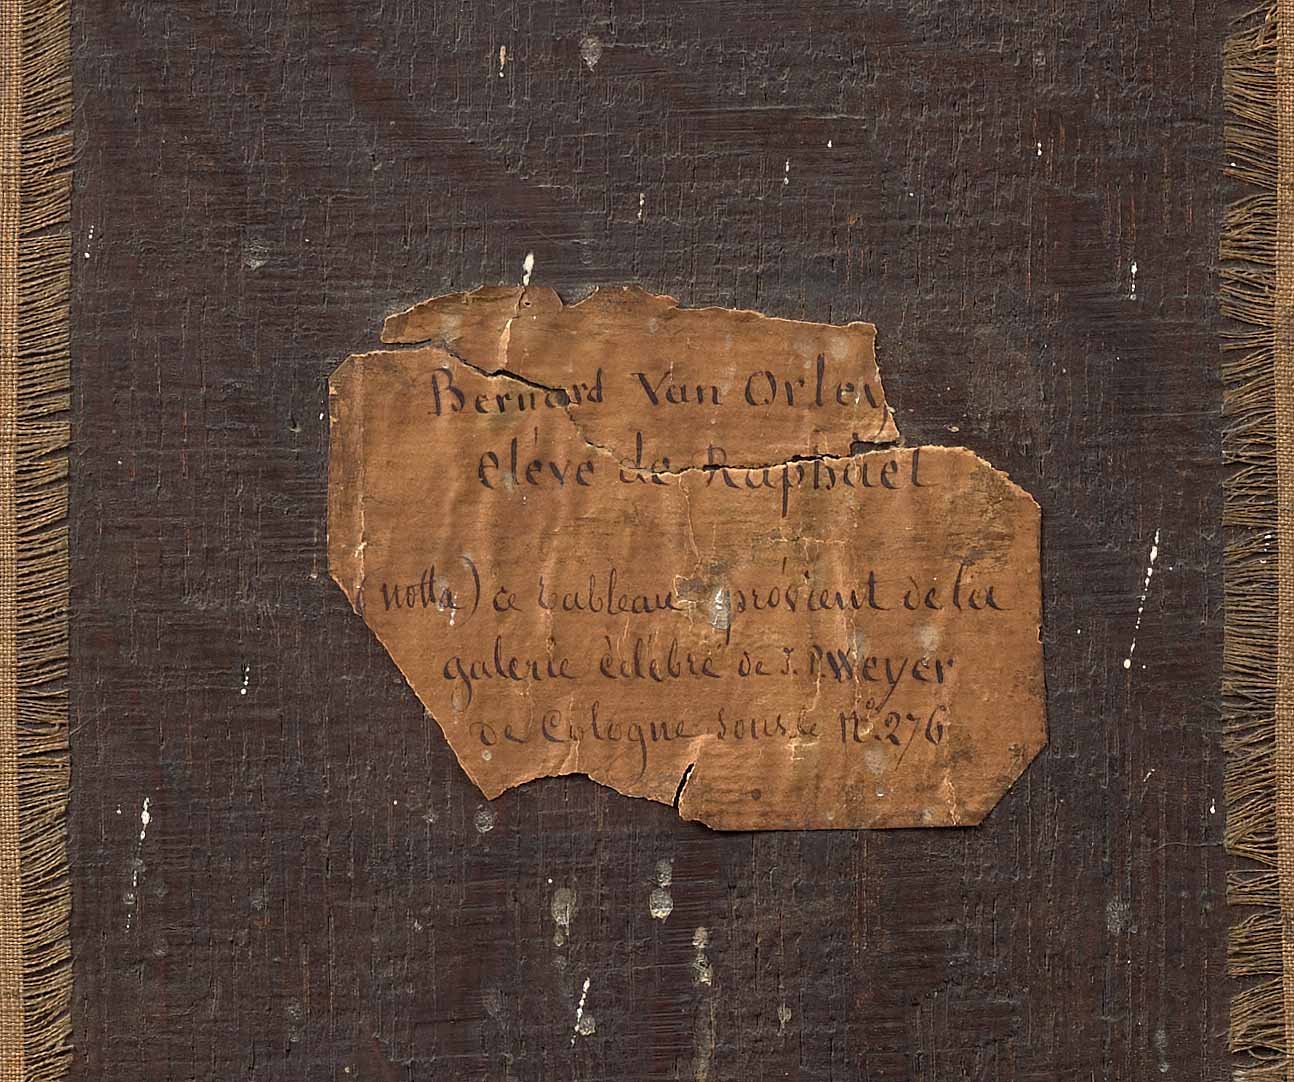 Bernard Van Orley
eléve de Raphael
(notta) ce tableau provient de la
galerie célébre de J. P. Weyer
de Cologne sous le Nº. 276